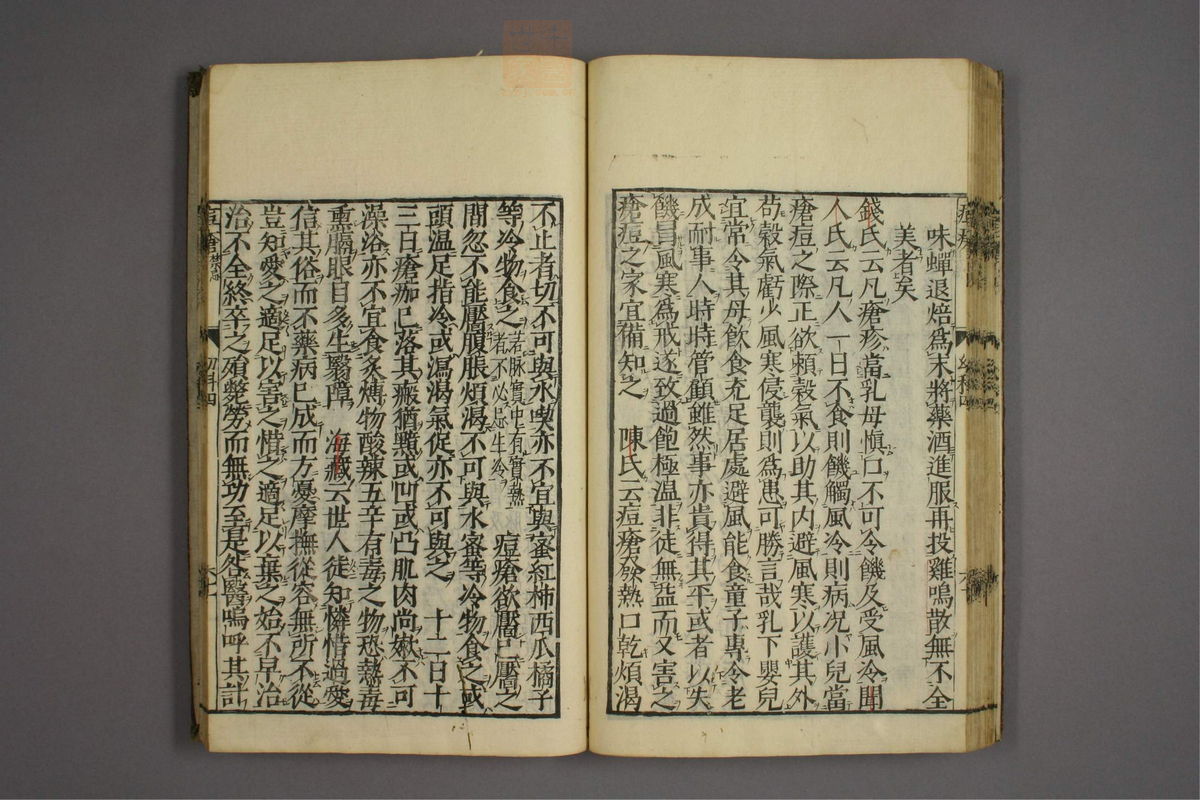 味蟬退焙爲末將藥酒進服再投雞鳴散無不全
美者矣
錢氏云凡瘡疹當乳母愼口不可令饑及受風冷聞
人氏云凡人一日不食則饑觸風冷則病况小兒當
瘡痘之際正欲賴穀氣以助其内避風寒以護其外
苟穀氣虧少風寒侵襲則爲患可勝言哉乳下嬰兒
宜常令其母飲食充足居處避風能食童子專令老
成耐事人時時管顧雖然事亦貴得其平或者以失
饑冒風寒爲戒遂致過飽極温非徒無益而又害之
瘡痘之家宜備知之　陳氏云痘瘡發熱口乾煩渴
不止者切不可與水喫亦不宜與蜜紅柿西瓜橘子
等冷物食之若脉實中有實熱者不必忌生冷　痘瘡欲靨已靨之
間忽不能靨腹脹煩渴不可與水蜜等冷物食之或
頭温足指冷或瀉渴氣促亦不可與之　十二日十
三日瘡痂已落其瘢猶黯或凹或凸肌肉尚嫩不可
澡浴亦不宜食炙煿物酸辣五辛有毒之物恐熱毒
熏膈眼目多生翳障　海藏云世人徒知憐惜過愛
信其俗而不藥病已成而方憂摩撫從容無所不從
豈知愛之適足以害之惜之適足以棄之始不早治
治不全終卒之殞斃勞而無功至是咎醫嗚呼其計
痘瘡
禁忌
幼科四